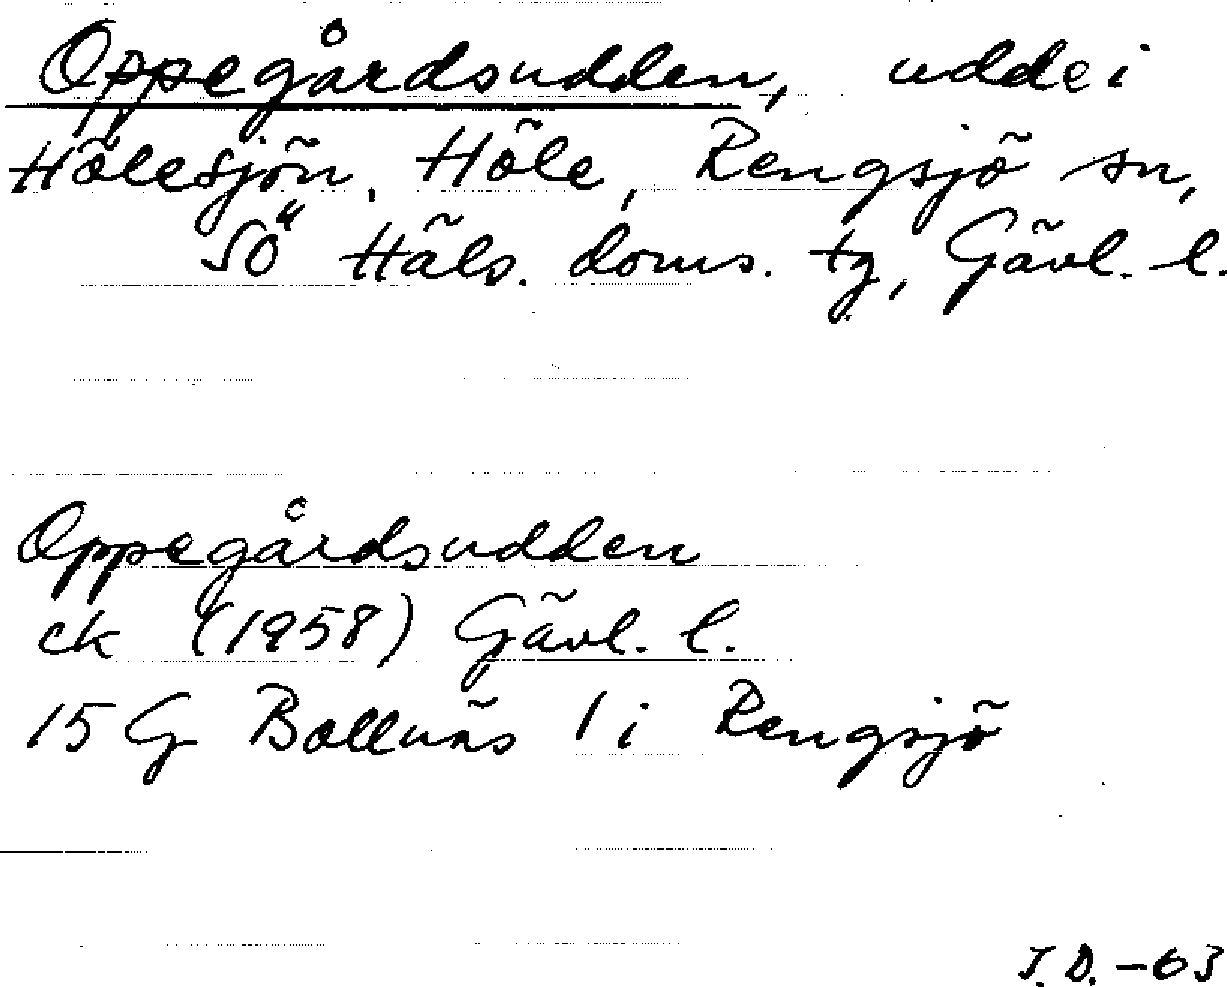 Oppegårdsudden, udde i
Hölesjön, Höle, Rengsjö sn,
SÖ Häls. doms. tg, Gävl. l.
Oppegårdsudden
ek (1958) Gävl. l.
15 G Bollnäs 1 i Rengsjö
J.D. -63